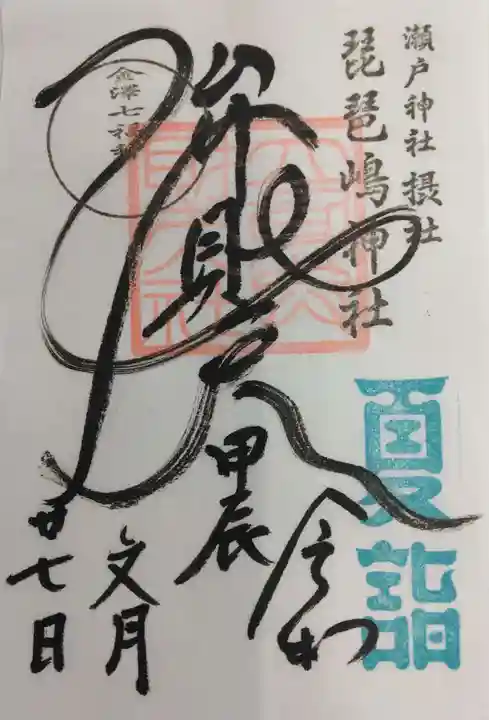 瀬戸神社摂社
琵琶嶋神社
夏詣
弁財天
令和
甲辰
文月
廿七日
金澤七福神